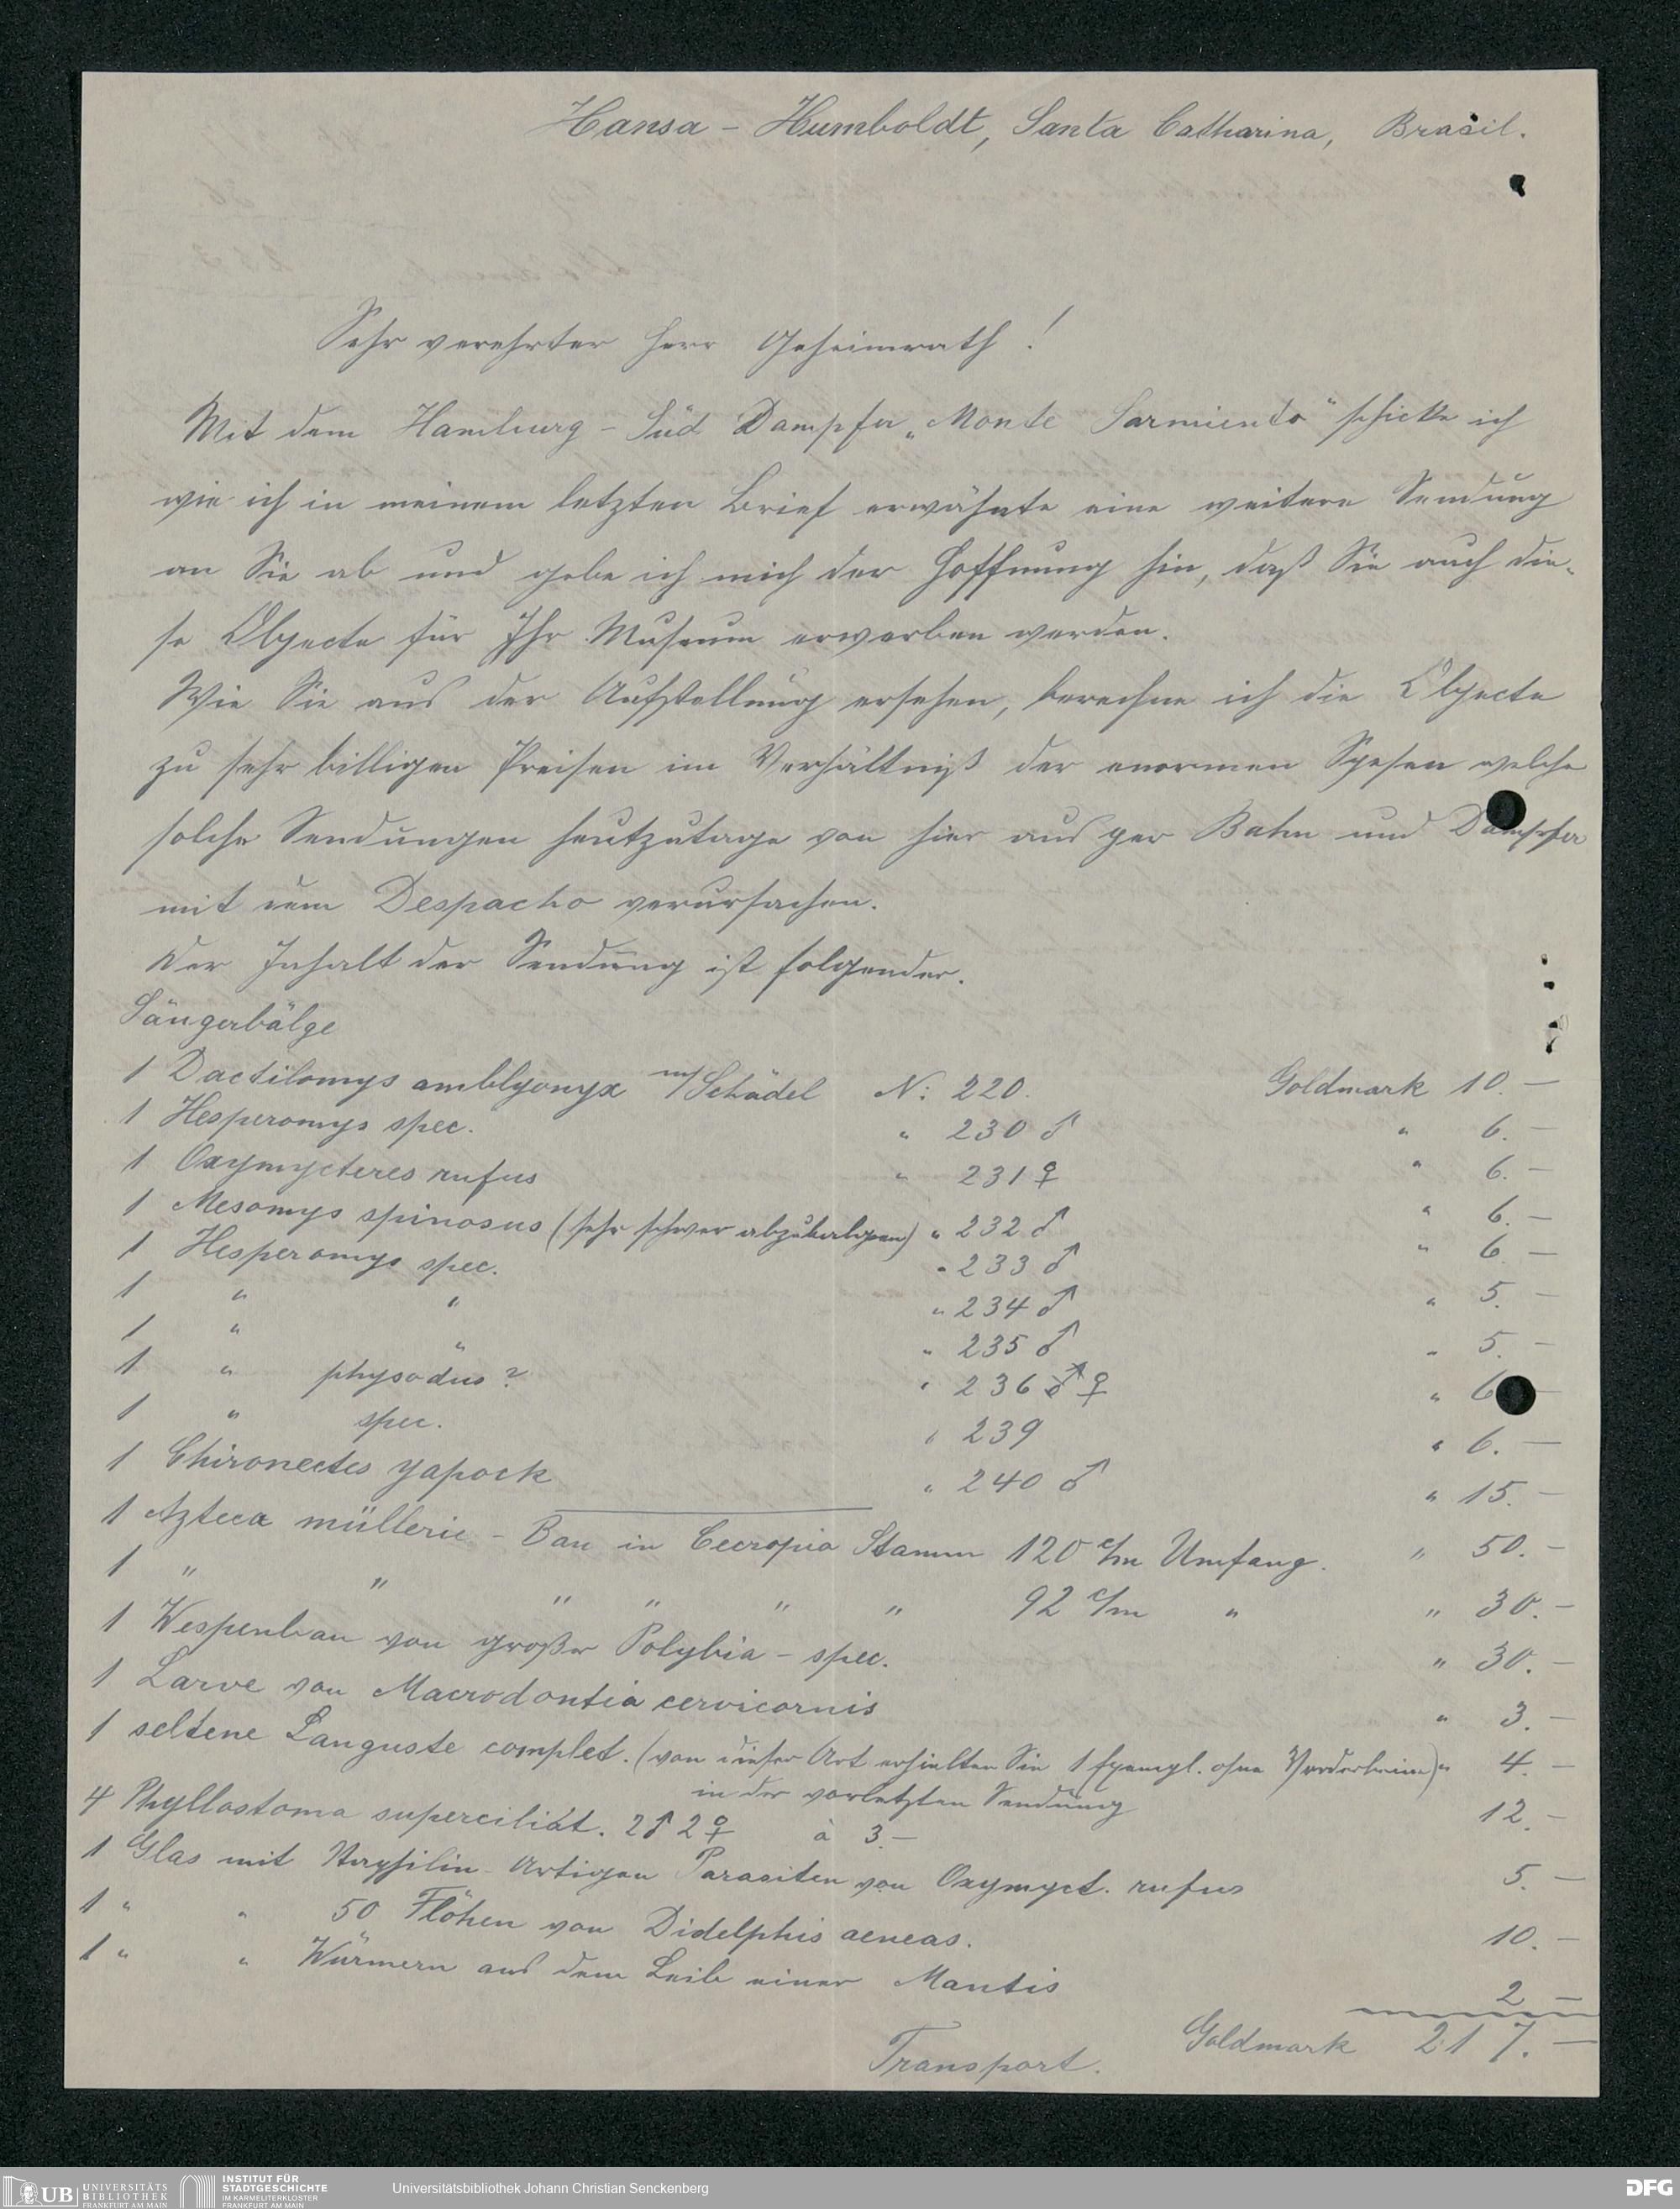 Hansa – Humboldt, Santa Catharina, Brasil.
Sehr verehrter Herr Geheimrath!
Mit dem Hamburg – Süd Dampfer „Monte Sarmiento" schicke ich
wie ich in meinem letzten Brief erwähnte eine weitere Sendung
an Sie ab und gebe ich mich der Hoffnung hin, daß Sie auch die-
se Objecte für Ihr Museum erwerben werden.
Wie Sie aus der Aufstellung ersehen, berechne ich die Objecte
zu sehr billigen Preisen im Verhältniß der enormen Spesen welche
solche Sendungen heutzutage von hier aus per Bahn und Dampfer
mit dem Despacho verursachen.
Der Inhalt der Sendung ist folgender.
Säugerbälge
1 Dactilomys amblyonyx m/Schädel N: 220. Goldmark 10.—
1 Hesperomys spec. " 230 ♂ " 6.—
1 Oxymycteres rufus " 231 ♀ " 6.—
1 Mesomys spinosus (sehr schwer abzubalgen) " 232 ♂ " 6.—
1 Hesperomys spec. " 233 ♂ " 6.—
1 " " " 234 ♂ " 5.—
1 " " " 235 ♂ " 5.—
1 " physodus? " 236 ♀ " 6.—
1 " spec. " 239 " 6.—
1 Chironectes yapock " 240 ♂ " 15.—
1 Azteca müllerie – Bau in Cecropia Stamm 120 c/m Umfang. " 50.—
1 " " " " " " 92 c/m " " 30.—
1 Wespenbau von großer Polybia – spec. " 30.—
1 Larve von Macrodontia cervicornis " 3.—
1 seltene Languste complet. (von dieser Art erhielten Sie 1 Exempl. ohne Vorderbeine) " 4.—
in der vorletzten Sendung
4 Phyllostoma superciliat. 2♂ 2♀ à 3.— 12.—
1 Glas mit Artigen Parasiten von Oxymyct. rufus 5.—
1 " " 50 Flöhen von Didelphis aeneas. 10.—
1 " " Würmern aus dem Leib einer Mantis 2 —
Transport. Goldmark 217.—
UB UNIVERSITÄTS
BIBLIOTHEK
FRANKFURT AM MAIN
INSTITUT FÜR
STADTGESCHICHTE
IM KARMELITERKLOSTER
FRANKFURT AM MAIN
Universitätsbibliothek Johann Christian Senckenberg
DFG